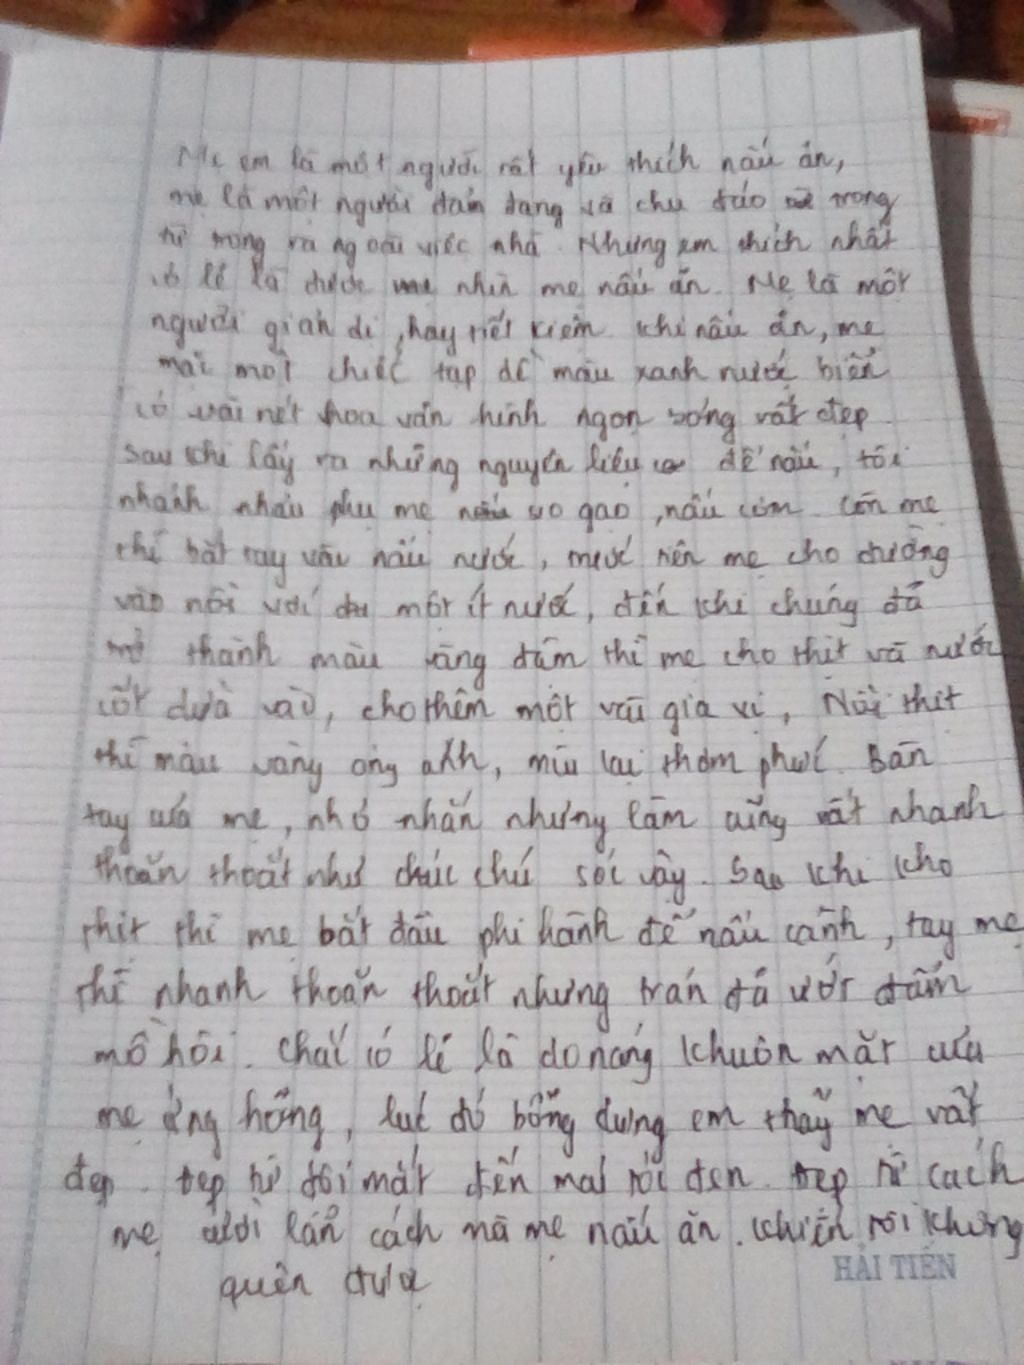 Mẹ em là một người rất yêu thích nấu ăn,
mẹ là một người đảm đang và chu đáo trong
từ trong ra ngoài việc nhà. Nhưng em thích nhất
có lẽ là được nhìn mẹ nấu ăn. Mẹ là một
người giản dị, hay tiết kiệm khi nấu ăn, mẹ
mặc một chiếc tạp dề màu xanh nước biển
có vài nét hoa văn hình ngọn sóng rất đẹp
sau khi lấy ra những nguyên liệu để nấu, tôi
nhanh nhảu phụ mẹ vo gạo, nấu cơm. Còn mẹ
thì bắt tay vào nấu nước, trước tiên mẹ cho đường
vào nồi với một ít nước, đến khi chúng đã
trở thành màu vàng đậm thì mẹ cho thịt và nước
cốt dừa vào, cho thêm một vài gia vị, Nồi thịt
thì màu vàng óng ánh, mùi lại thơm phức. Bàn
tay của mẹ, nhỏ nhắn nhưng làm cũng rất nhanh
thoăn thoắt như chú sóc vậy. Sau khi kho
thịt thì mẹ bắt đầu phi hành để nấu canh, tay mẹ
thì nhanh thoăn thoắt nhưng trán đã ướt đẫm
mồ hôi. Chắc có lẽ là do nóng khuôn mặt của
mẹ ửng hồng, lúc đó bỗng dưng em thấy mẹ rất
đẹp. Đẹp từ đôi mắt đến mái tóc đen. Đẹp từ cách
mẹ cười lẫn cách mà mẹ nấu ăn. Khiến tôi không
quên được
HẢI TIẾN